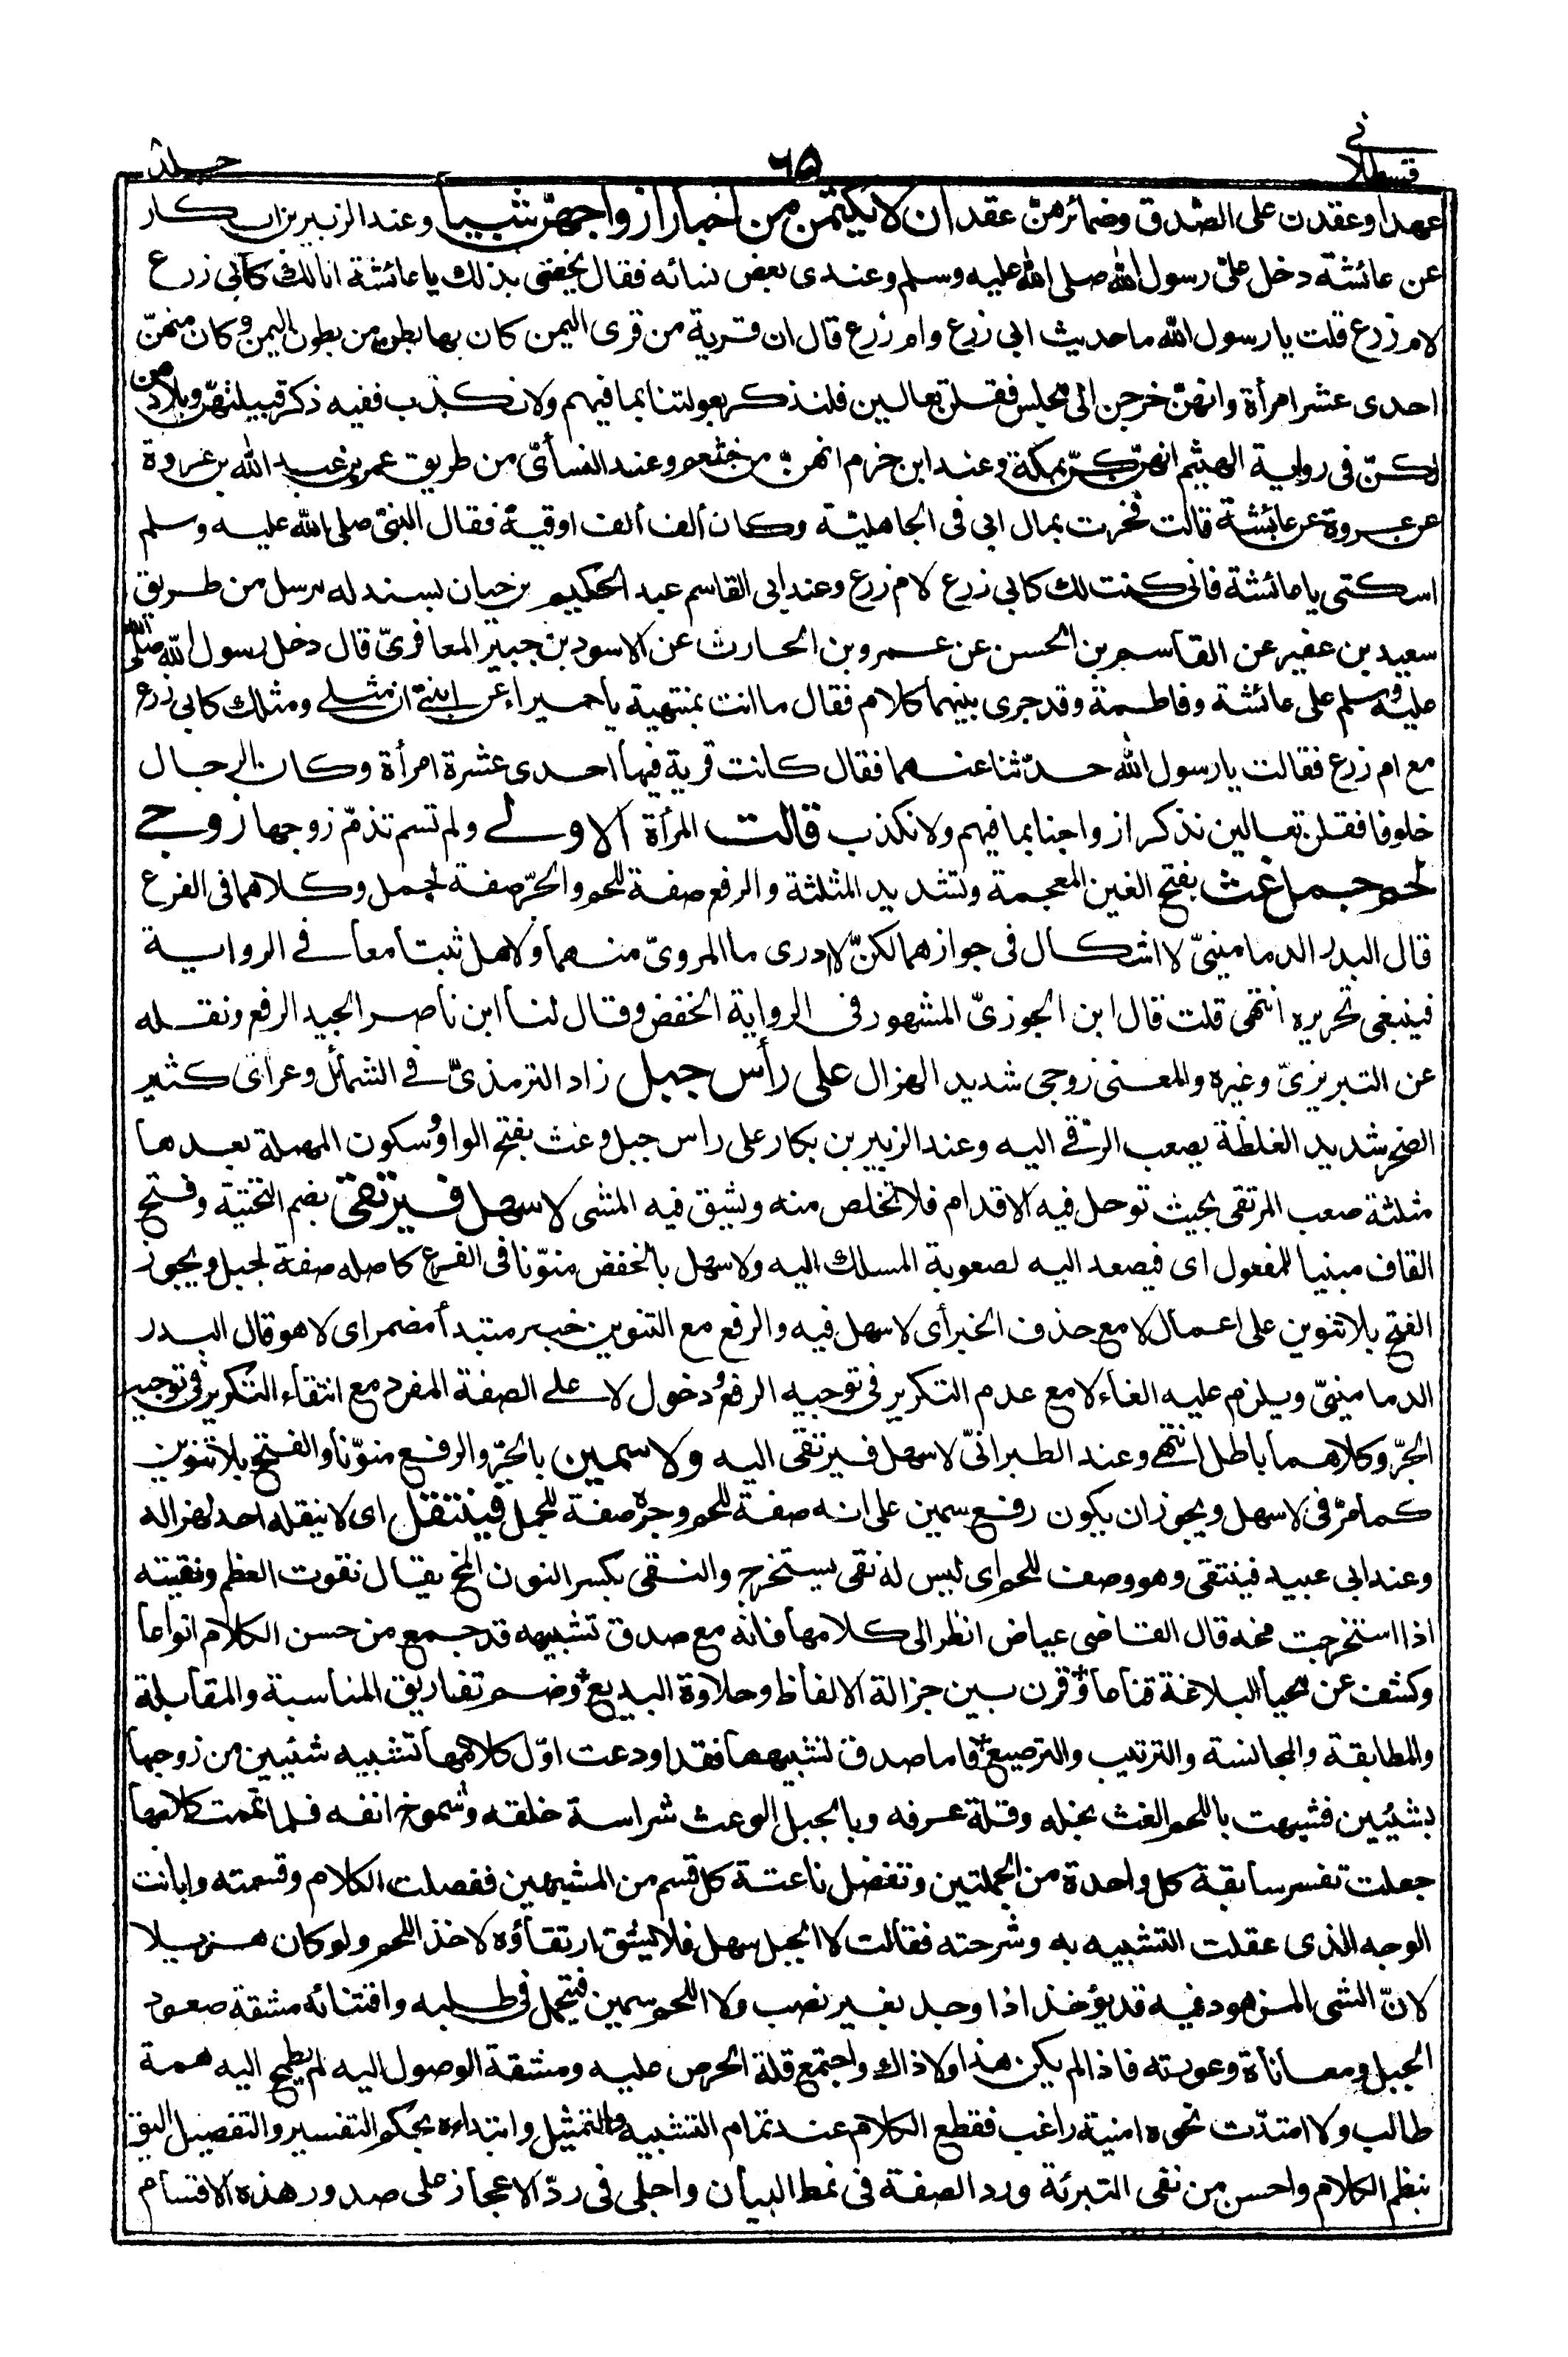 قسطلانی
٦٥
جلد
عهدا وعقدت على الصدق وضمائرهن عقد ان لا يكتمن من اخبار ازواجهن شيئا وعند الزبير بن بكار
عن عائشة دخل علىّ رسول الله صلى الله عليه وسلم وعندى بعض نسائه فقال يخصنى بذلك يا عائشة انا لك كابى زرع
لام زرع قلت يا رسول الله ما حديث ابى زرع وام زرع قال ان قرية من قرى اليمن كان بها بطن من بطون اليمن وكان منهنّ
احدى عشر امرأة وانهنّ خرجن الى مجلس فقلن تعالين فلنذكر بعولتنا بما فيهم ولا نكذب ففيه ذكر قبيلتهنّ وبلادهن
لكنّ فى رواية الهيثم انهنّ كنّ بمكة وعند ابن حزم انهن من خثعم وعند النسائىّ من طريق عمر بن عبد الله بن عروة
عن عروة عن عائشة قالت فخرت بمال ابى فى الجاهليّة وكان ألف ألف اوقية فقال النبىّ صلى الله عليه وسلم
اسكتى يا عائشة فانى كنت لك كابى زرع لام زرع وعند ابى القاسم عبد الحكيم بن حيان بسند له مرسل من طريق
سعيد بن عفير عن القاسم بن الحسن عن عمرو بن الحارث عن الاسود بن جبير المعافرىّ قال دخل رسول الله صلى الله
عليه وسلم على عائشة وفاطمة وقد جرى بينهما كلام فقال ما انت بمنتهية يا حميراء عن ابنتى ان مثلى ومثلك كابى زرع
مع ام زرع فقالت يا رسول الله حدّثنا عنهما فقال كانت قرية فيها احدى عشرة امرأة وكان الرجال
خلوفا فقلن تعالين نذكر ازواجنا بما فيهم ولا نكذب قالت المرأة الاولى ولم تسم تذمّ زوجها زوجى
لحم جمل غث بفتح الغين المعجمة وتشديد المثلثة والرفع صفة للحم والجرّ صفة لجمل وكلاهما فى الفرع
قال البدر الدمامينىّ لا اشكال فى جوازهما لكنّ لا ادرى ما المروىّ منهما ولا هل ثبتا معا فى الرواية
فينبغى تحريره انتهى قلت قال ابن الجوزىّ المشهور فى الرواية الخفض وقال لنا ابن ناصر الجيد الرفع ونقله
عن التبريزىّ وغيره والمعنى زوجى شديد الهزال على رأس جبل زاد الترمذىّ فى الشمائل وعر اى كثير
الضجر شديد الغلظة يصعب الرقى اليه وعند الزبير بن بكار على راس جبل وعث بفتح الواو وسكون المهملة بعدها
مثلثة صعب المرتقى بحيث توحل فيه الاقدام فلا تخلص منه ويشق فيه المشى لا سهل فيرتقى بضم التحتية وفتح
القاف مبنيا للمفعول اى فيصعد اليه لصعوبة المسلك اليه ولا سهل بالخفض منوّنا فى الفرع كاصله صفة لجبل ويجوز
الفتح بلا تنوين على اعمال لا مع حذف الخبر أى لا سهل فيه والرفع مع التنوين خبر مبتدأ مضمر اى لا هو قال البدر
الدمامينىّ ويلزم عليه الغاء لا مع عدم التكرير فى توجيه الرفع ودخول لا على الصفة المفرد مع انتفاء التكرير فى توجيه
الجرّ وكلاهما باطل انتهى وعند الطبرانىّ لا سهل فيرتقى اليه ولا سمين بالجرّ والرفع منوّنا والفتح بلا تنوين
كما مرّ فى لا سهل ويجوز ان يكون رفع سمين على انه صفة للحم وجره صفة للجمل فينتقل اى لا ينقله احد لهزاله
وعند ابى عبيد فينتقى وهو وصف للحم اى ليس له نقى يستخرج والنقى بكسر النون المخ يقال نقوت العظم ونقيته
اذا استخرجت مخه قال القاضى عياض انظر الى كلامها فانه مع صدق تشبيهه قد جمع من حسن الكلام انواعا
وكشف عن محيا البلاغة قناعا وقرن بين جزالة الالفاظ وحلاوة البديع وضم تفاريق المناسبة والمقابلة
والمطابقة والمجانسة والترتيب والترصيع فاما صدق تشبيهها فقد اودعت اوّل كلامها تشبيه شيئين من زوجها
بشيئين فشبهت باللحم الغث بخله وقلة عرفه وبالجبل الوعث شراسة خلقه وشموخ انفه فلما تممت كلامها
جعلت تفسر سابقة كل واحدة من الجملتين وتفصل ناعتة كل قسم من المشبهين ففصلت الكلام وقسمته وابانت
الوجه الذى عقلت التشبيه به وشرحته فقالت لا الجبل سهل فلا يشق ارتقاؤه لاخذ اللحم ولو كان هزيلا
لانّ الشى المزهود فيه قد يؤخذ اذا وجد بغير نصب ولا اللحم سمين فيتحمل فى طلبه واقتنائه مشقة صعود
الجبل ومعاناة وعورته فاذا لم يكن هذا ولا ذاك واجتمع قلة الحرص عليه ومشقة الوصول اليه لم يطمح اليه همة
طالب ولا امتدّت نحوه امنية راغب فقطع الكلام عند تمام التشبيه والتمثيل وابتداءه بحكم التفسير والتفصيل اليق
بنظم الكلام واحسن من نفى التبرئة ورد الصفة فى نمط البيان واجلى فى ردّ الاعجاز على صدور هذه الاقسام